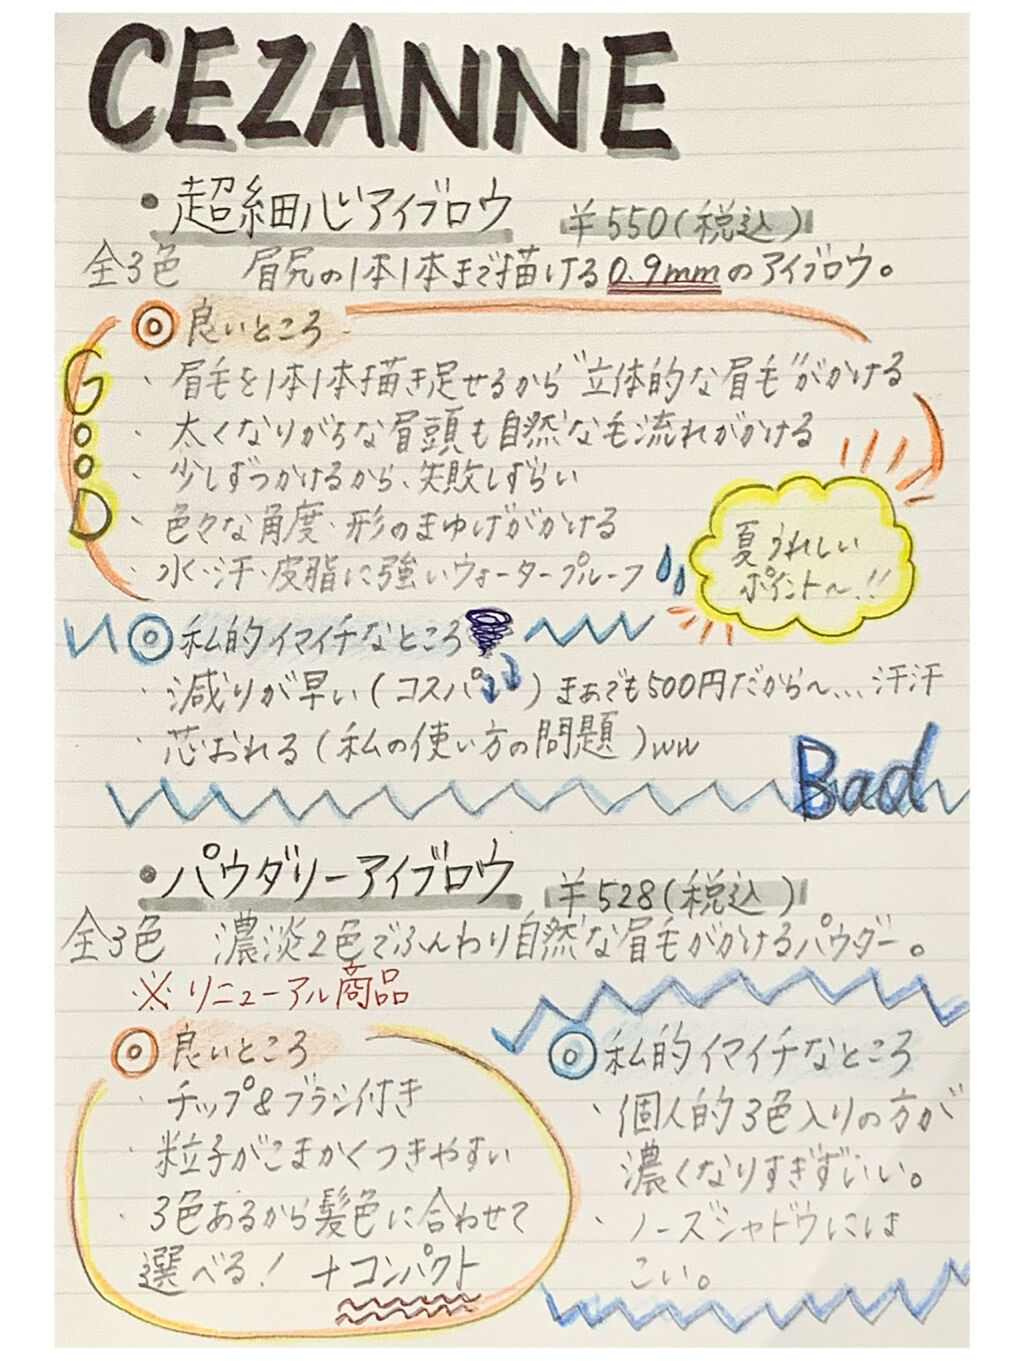 CEZANNE
・超細芯アイブロウ ¥550(税込)
全3色 眉尻の1本1本まで描ける0.9mmのアイブロウ。
◎良いところ
GOOD
・眉毛を1本1本描き足せるから"立体的な眉毛"がかける
・太くなりがちな眉頭も自然な毛流れがかける
・少しずつかけるから、失敗しずらい
・色々な角度・形のまゆげがかける
・水・汗・皮脂に強いウォータープルーフ
夏うれしい
ポイント〜!!
◎私的イマイチなところ
・減りが早い(コスパ↓↓)まぁでも500円だから〜...汗汗
・芯おれる(私の使い方の問題)ww
Bad
・パウダリーアイブロウ ¥528(税込)
全3色 濃淡2色でふんわり自然な眉毛がかけるパウダー。
※リニューアル商品
◎良いところ
・チップ&ブラシ付き
・粒子がこまかくつきやすい
・3色あるから髪色に合わせて
選べる! +コンパクト
◎私的イマイチなところ
・個人的3色入りの方が
濃くなりすぎずいい。
・ノーズシャドウには
こい。